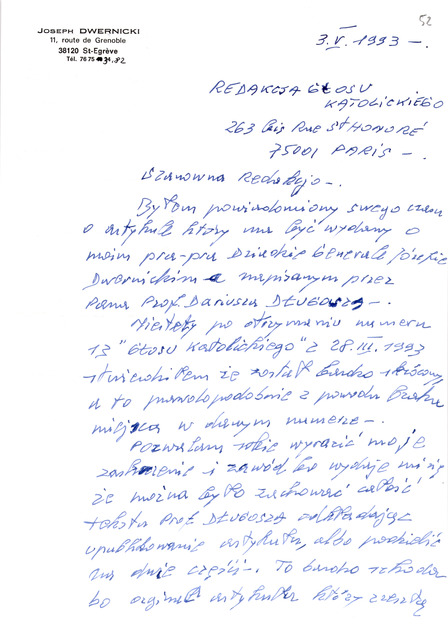 52
JOSEPH DWERNICKI
11, route de Grenoble
38120 St-Egrève
Tél. 76 75 31.82
3.V.1993 -.
REDAKCJA GŁOSU
KATOLICKIEGO
263 bis Rue St HONORÉ
75001 PARIS -.
Szanowna Redakcjo -.
Byłem powiadomiony swego czasu
o artykule który ma być wydany o
moim pra-pra Dziadku Generale Józefie
Dwernickim a napisanym przez
Pana Prof. Dariusza DŁUGOSZA -.
Niestety po otrzymaniu numeru
13 "Głosu Katolickiego" z 28.III.1993
stwierdziłem że został bardzo skrócony
a to prawdopodobnie z powodu braku
miejsca w danym numerze -.
Pozwalam sobie wyrazić moje
i zawód bo wydaje mi się
że można było zachować całość
tekstu Prof. DŁUGOSZA odkładając
opublikowanie artykułu, albo podzielić
na dwie części -. To bardzo szkoda
bo orginał artykułu który zresztą